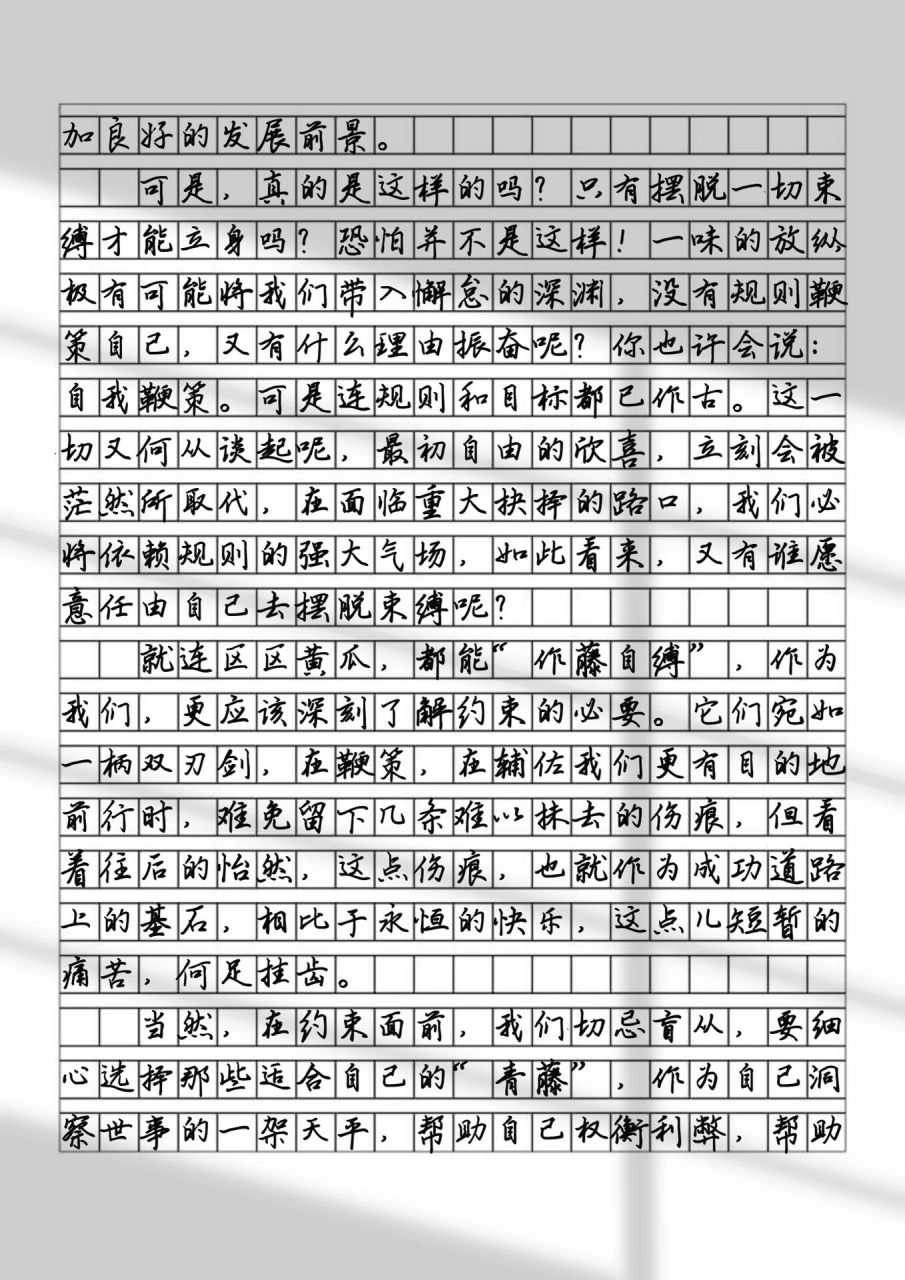 加良好的发展前景。
可是，真的是这样的吗？只有摆脱一切束
缚才能立身吗？恐怕并不是这样！一味的放纵
极有可能将我们带入懈怠的深渊，没有规则鞭
策自己，又有什么理由振奋呢？你也许会说：
自我鞭策。可是连规则和目标都已作古。这一
切又何从谈起呢，最初自由的欣喜，立刻会被
茫然所取代，在面临重大抉择的路口，我们必
将依赖规则的强大气场，如此看来，又有谁愿
意任由自己去摆脱束缚呢？
就连区区黄瓜，都能“作藤自缚”，作为
我们，更应该深刻了解约束的必要。它们宛如
一柄双刃剑，在鞭策，在辅佐我们更有目的地
前行时，难免留下几条难以抹去的伤痕，但看
着往后的怡然，这点伤痕，也就作为成功道路
上的基石，相比于永恒的快乐，这点儿短暂的
痛苦，何足挂齿。
当然，在约束面前，我们切忌盲从，要细
心选择那些适合自己的“青藤”，作为自己洞
察世事的一架天平，帮助自己权衡利弊，帮助